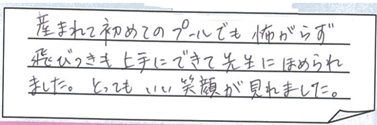 産まれて初めてのプールでも怖がらず
飛びつきも上手にできて先生にほめられ
ました。とってもいい笑顔が見れました。